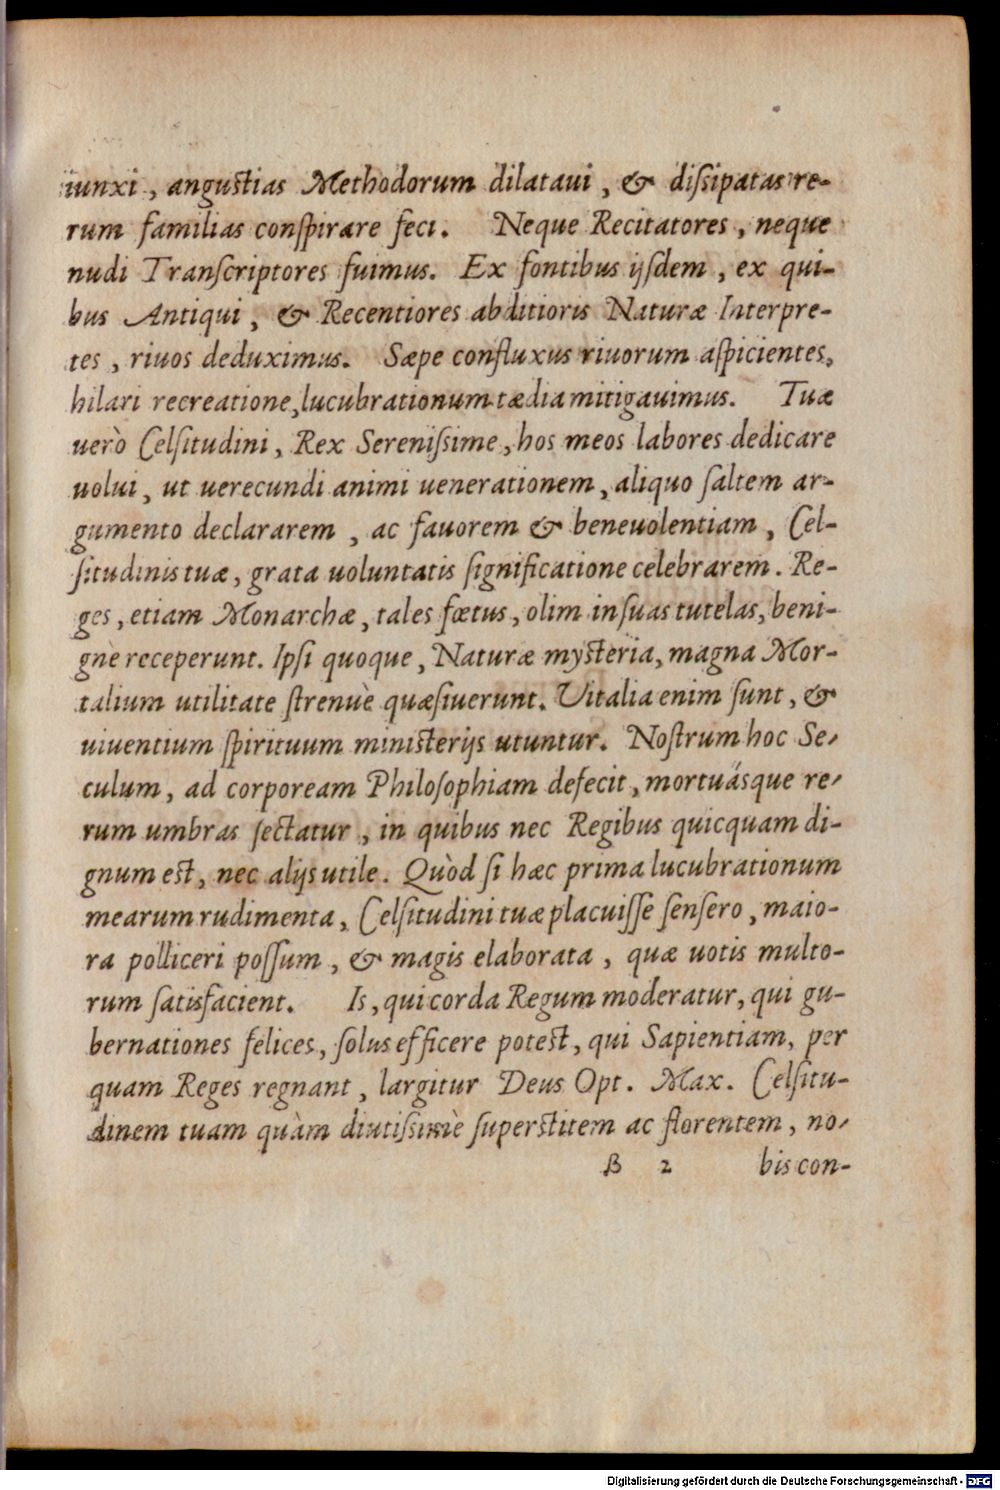 iunxi, angustias Methodorum dilataui, & dißipatas re-
rum familias conſpirare feci. Neque Recitatores, neque
nudi Tranſcriptores fuimus. Ex fontibus ijſdem, ex qui-
bus Antiqui, & Recentiores abditioris Naturæ Interpre-
tes, riuos deduximus. Sæpe confluxus riuorum aſpicientes,
hilari recreatione, lucubrationum tædia mitigauimus. Tuæ
uerò Celſitudini, Rex Sereniſsime, hos meos labores dedicare
uolui, ut uerecundi animi uenerationem, aliquo ſaltem ar-
gumento declararem, ac fauorem & beneuolentiam, Cel-
ſitudinis tuæ, grata uoluntatis ſignificatione celebrarem. Re-
ges, etiam Monarchæ, tales fœtus, olim in ſuas tutelas, beni-
gnè receperunt. Ipſi quoque, Naturæ myſteria, magna Mor-
talium utilitate ſtrenuè quæſiuerunt. Vitalia enim ſunt, &
uiuentium ſpirituum miniſterijs utuntur. Noſtrum hoc Se-
culum, ad corpoream Philoſophiam defecit, mortuásque re-
rum umbras ſectatur, in quibus nec Regibus quicquam di-
gnum eſt, nec alijs utile. Quòd ſi hæc prima lucubrationum
mearum rudimenta, Celſitudini tuæ placuiſſe ſenſero, maio-
ra polliceri poſſum, & magis elaborata, quæ uotis multo-
rum ſatisfacient. Is, qui corda Regum moderatur, qui gu-
bernationes felices, ſolus efficere poteſt, qui Sapientiam, per
quam Reges regnant, largitur Deus Opt. Max. Celſitu-
dinem tuam quàm diutiſsimè ſuperſtitem ac florentem, no-
B 2 bis con-
Digitalisierung gefördert durch die Deutsche Forschungsgemeinschaft - DFG